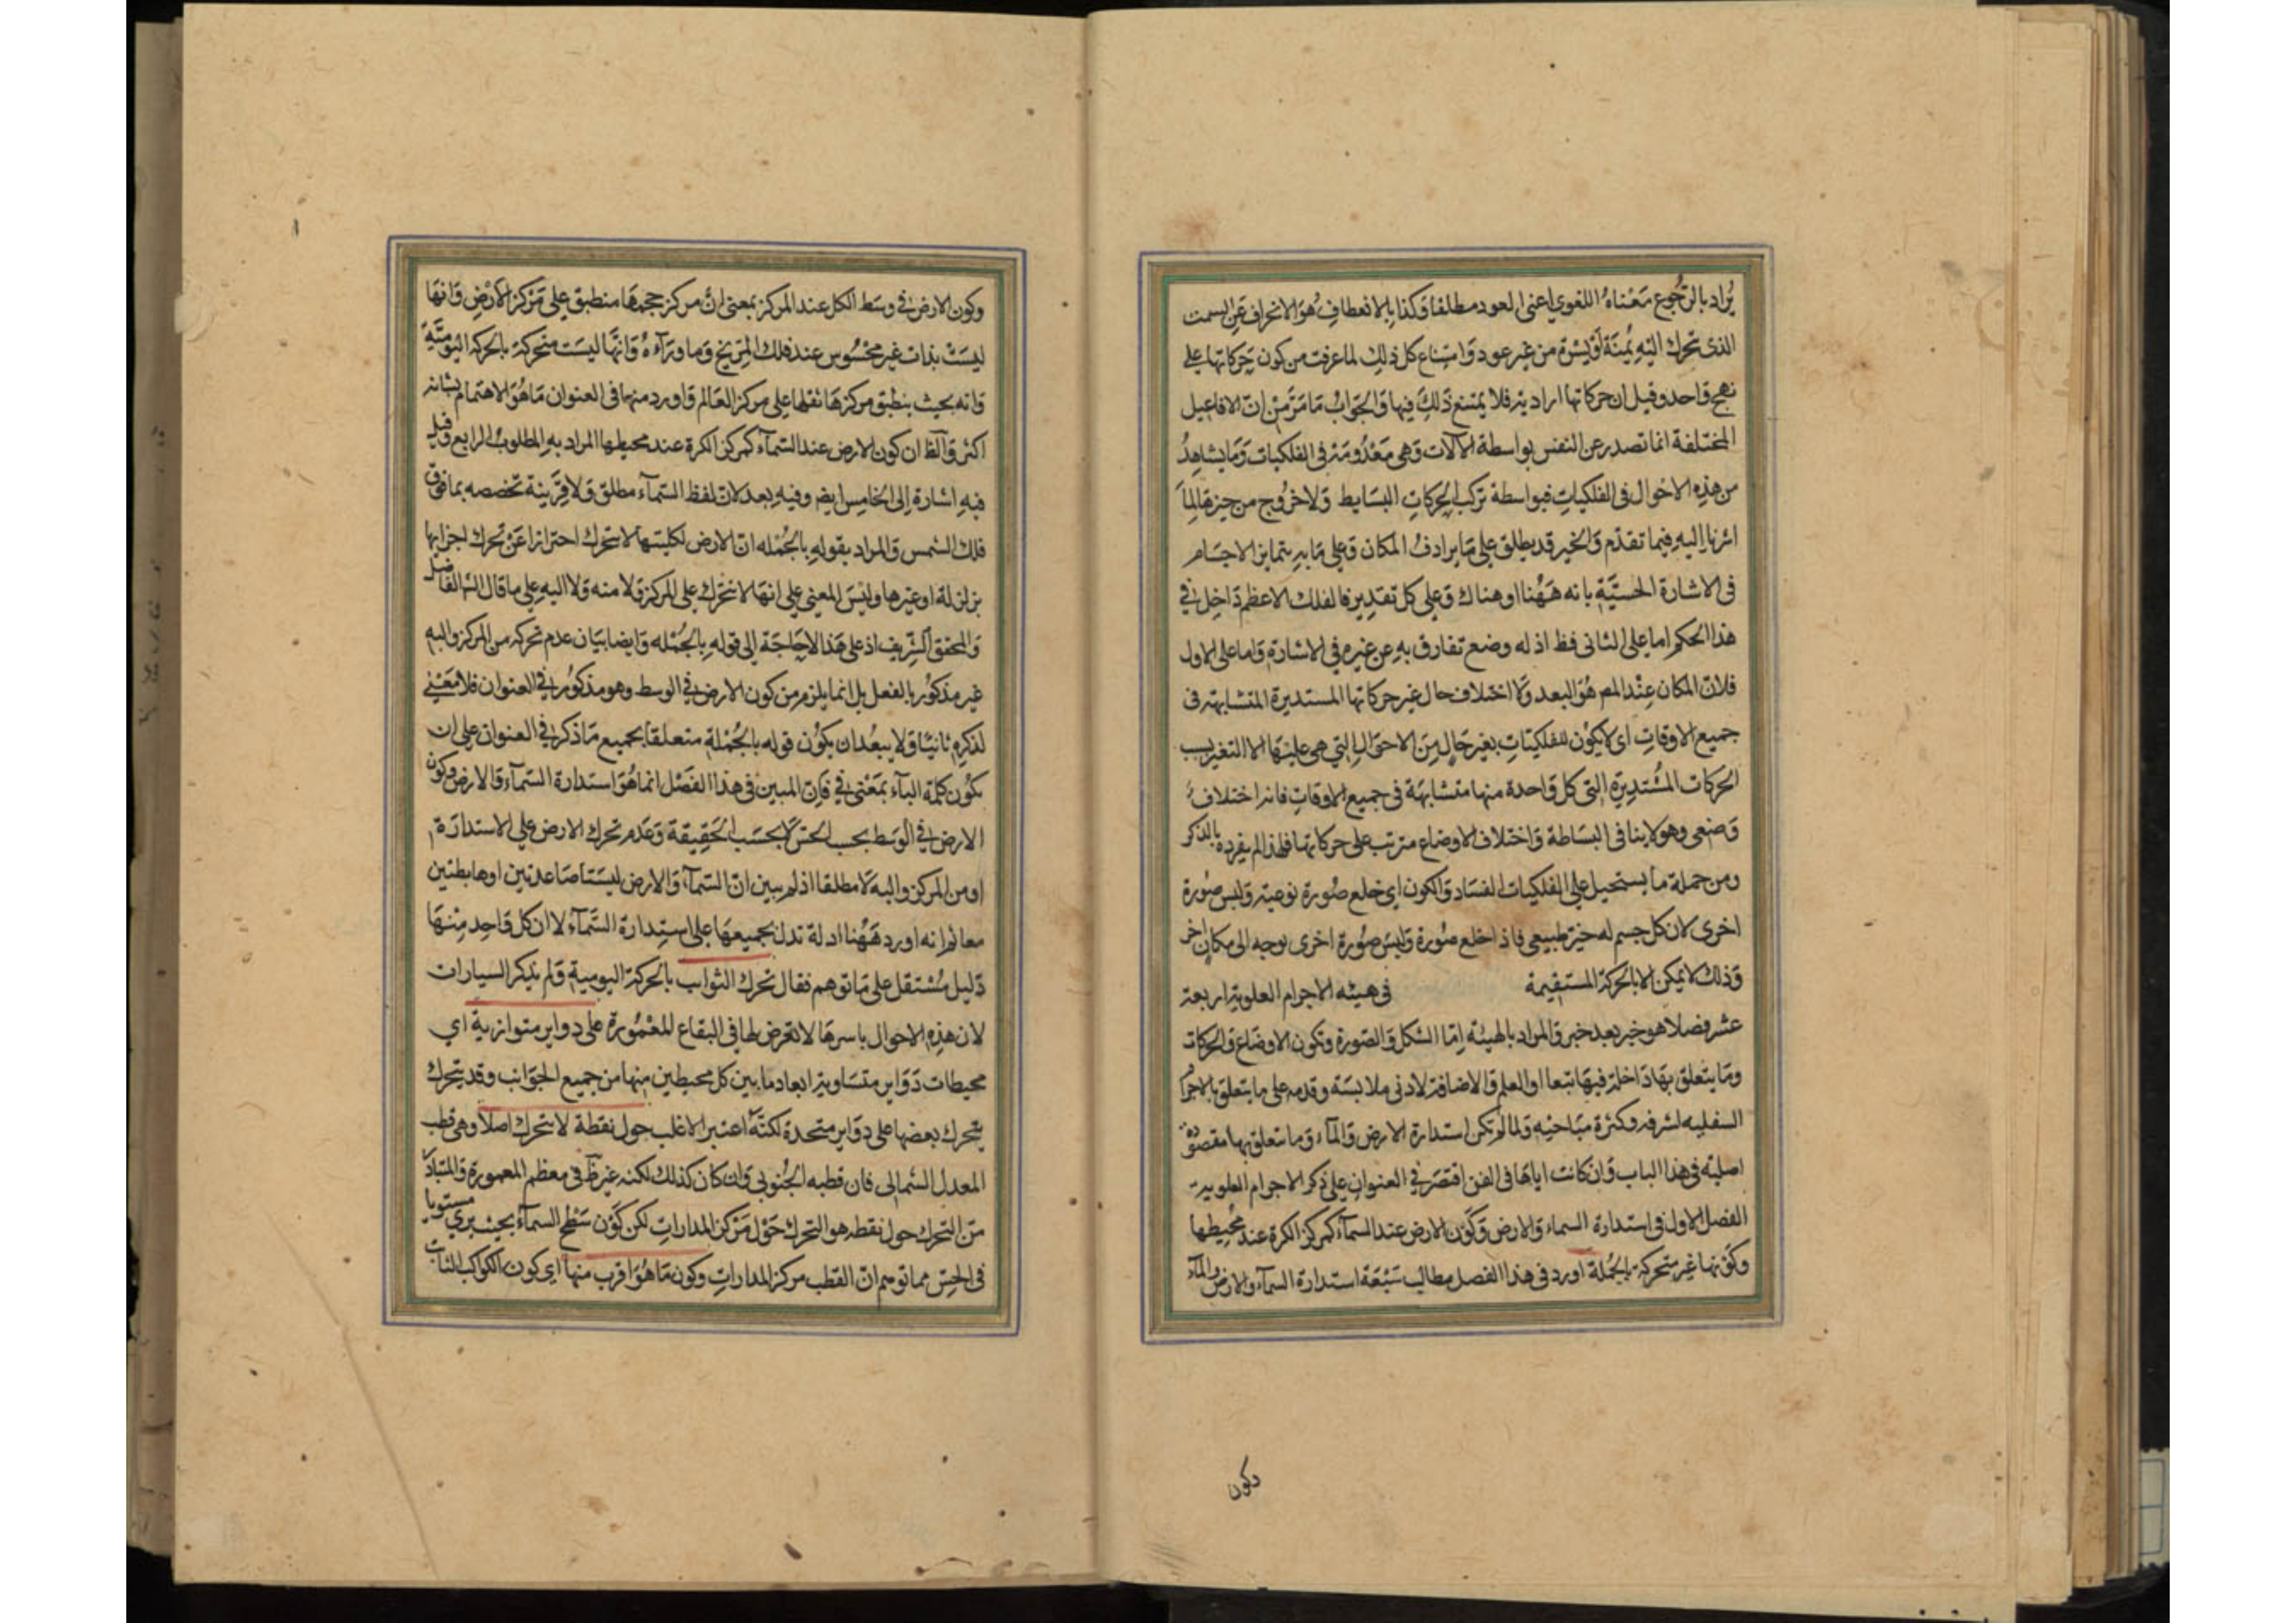 يراد بالرجوع معناه اللغوي اعنى العود مطلقا وكذا بالانعطاف هو الانحراف عن السمت
الذى تحرك اليه يمنة او يسرة من غير عود وامتناع كل ذلك لما عرفت من كون حركاتها على
نهج واحد وقيل ان حركاتها ارادية فلا يمتنع ذلك فيها والجواب ما مر من ان الافاعيل
المختلفة انما تصدر عن النفس بواسطة الآلات وهى معدومة فى الفلكيات وما يشاهد
من هذه الاحوال فى الفلكيات فبواسطة تركب الحركات البسايط ولا خروج من حيزها لما
اشرنا اليه فيما تقدم والحيز قد يطلق على ما يرادف المكان وعلى ما به يتمايز الاجسام
فى الاشارة الحسية بانه ههنا او هناك وعلى كل تقدير فالفلك الاعظم داخل في
هذا الحكم اما على الثانى فظ اذ له وضع تفارق به عن غيره في الاشارة واما على الاول
فلان المكان عند المص هو البعد ولا اختلاف حال غير حركاتها المستديرة المتشابهة فى
جميع الاوقات اى لا يكون للفلكيات بغير حال من الاحوال التي هى عليها الا التغير بسبب
الحركات المستديرة التى كل واحدة منها متشابهة فى جميع الاوقات فانه اختلاف
وضعى وهو لا ينافى البساطة واختلاف الاوضاع مترتب على حركاتها فلهذا لم يفرده بالذكر
ومن جملة ما يستحيل على الفلكيات الفساد والكون اى خلع صورة نوعية ولبس صورة
اخرى لان كل جسم له حيز طبيعى فاذا خلع صورة ولبس صورة اخرى توجه الى مكان اخر
وذلك لا يمكن الا بالحركة المستقيمة فى هيئه الاجرام العلوية اربعة
عشر فصلا هو خبر بعد خبر والمراد بالهيئة اما الشكل والصورة وتكون الاوضاع والحركات
وما يتعلق بها داخلة فيها تبعا او العلم والاضافة لادنى ملابسة وقدمه على ما يتعلق بالاجرام
السفليه لشرفه وكثرة مباحثه ولما لم تكن استدارة الارض والماء وما يتعلق بها مقصودة
اصلية فى هذا الباب وان كانت اياها فى الفن اقتصر في العنوان على ذكر الاجرام العلوية
الفصل الاول فى استدارة السماء والارض وكون الارض عند السماء كمركز الكرة عند محيطها
وكونها غير متحركة بالجملة اورد فى هذا الفصل مطالب سبعة استدارة السماء والارض والماء
وكون
وكون الارض في وسط الكل عند المركز بمعنى ان مركز حجمها منطبق على مركز الارض وانها
ليست بذات غير محسوس عند فلك المريخ وما وراءه وانها ليست متحركة بالحركة اليومية
وانه بحيث ينطبق مركزها ثقلها على مركز العالم واورد منها فى العنوان ما هو الاهتمام بشانه
اكثر والظ ان كون الارض عند السماء كمركز الكرة عند محيطها المراد به المطلوب الرابع وقيل
فيه اشارة إلى الخامس ايض وفيه بعد لان لفظ السماء مطلق ولا قرينة تخصصه بما فوق
فلك الشمس والمراد بقوله بالجمله ان الارض لكليتها لا تتحرك احترازا عن تحرك اجزايها
بزلزلة او غيرها وليس المعنى على انها لا تتحرك على المركز ولا منه ولا اليه على ما قال الش الفاضل
والمحقق الشريف اذ على هذا لا حاجة إلى قوله بالجمله وايضا بيان عدم تحركه من المركز واليه
غير مذكور بالفعل بل انما يلزم من كون الارض في الوسط وهو مذكور في العنوان فلا معنى
لذكره ثانيا ولا يبعد ان يكون قوله بالجملة متعلقا بجميع ما ذكر في العنوان على ان
يكون كلمة الباء بمعنى في فان المبين فى هذا الفصل انما هو استدارة السماء والارض وكون
الارض في الوسط بحسب الحس لا بحسب الحقيقة وعدم تحرك الارض على الاستدارة
او من المركز واليه لا مطلقا اذ لم يبين ان السماء والارض ليستا صاعدتين او هابطتين
معا ثم انه اورد ههنا ادلة تدل بجميعها على استدارة السماء لا ان كل واحد منها
دليل مستقل على ما توهم فقال تحرك الثوابت بالحركة اليومية ولم يذكر السيارات
لان هذه الاحوال باسرها لا تعرض لها في البقاع المعمورة على دواير متوازية اي
محيطات دواير متساوية ابعاد ما بين كل محيطين منها من جميع الجوانب وقد يتحرك
يتحرك بعضها على دواير متحدة لكنه اعتبر الاغلب حول نقطة لا تتحرك اصلا وهى قطب
المعدل الشمالى فان قطبه الجنوبي وان كان كذلك لكنه غير ظ فى معظم المعمورة والمتبادر
من التحرك حول نقطه هو التحرك حول مركز المدارات لكن كون سطح السماء بحيث يري مستويا
فى الحس مما توهم ان القطب مركز المدارات وكون ما هو اقرب منها اى كون الكواكب الثابت